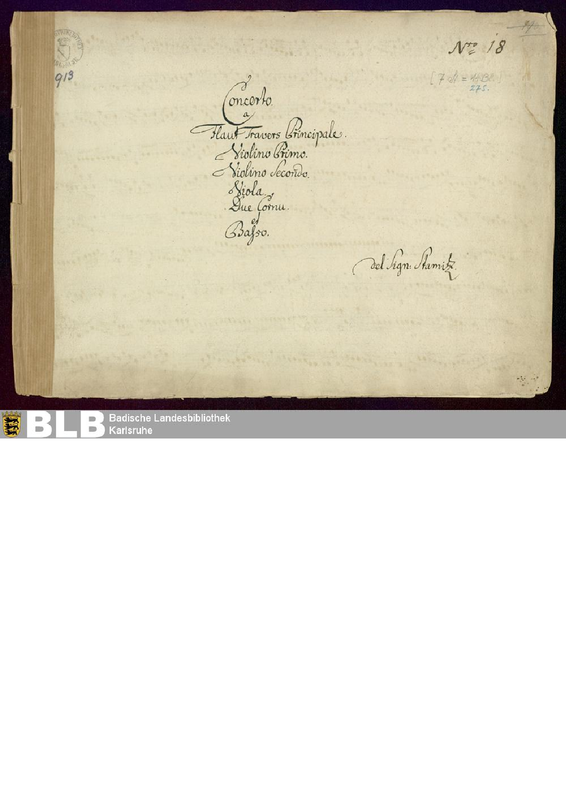 Nro 18
913
275.
Concerto
a
Flaut Travers Principale.
Violino Primo.
Violino Secondo.
Viola.
Due Cornu.
et
Basso.
del Sign. Stamitz
BLB Badische Landesbibliothek
Karlsruhe